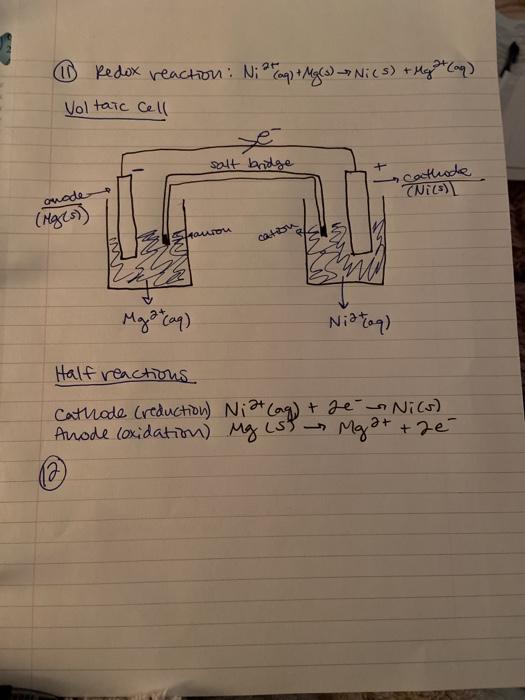 11 Redox reaction: Ni²⁺(aq) + Mg(s) → Ni(s) + Mg²⁺(aq)
Voltaic Cell
e⁻
salt bridge
−
+
anode
(Mg(s))
→ cathode
(Ni(s))
anion
cation
Mg²⁺(aq)
Ni²⁺(aq)
Half reactions
Cathode (reduction) Ni²⁺(aq) + 2e⁻ → Ni(s)
Anode (oxidation) Mg(s) → Mg²⁺ + 2e⁻
12